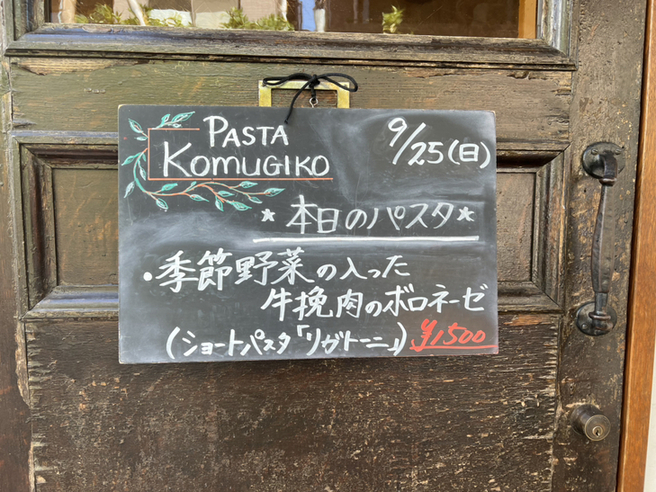 PASTA
KOMUGIKO
9/25(日)
★ 本日のパスタ ★
・季節野菜の入った
牛挽肉のボロネーゼ
(ショートパスタ「リガトーニ」) ¥1500